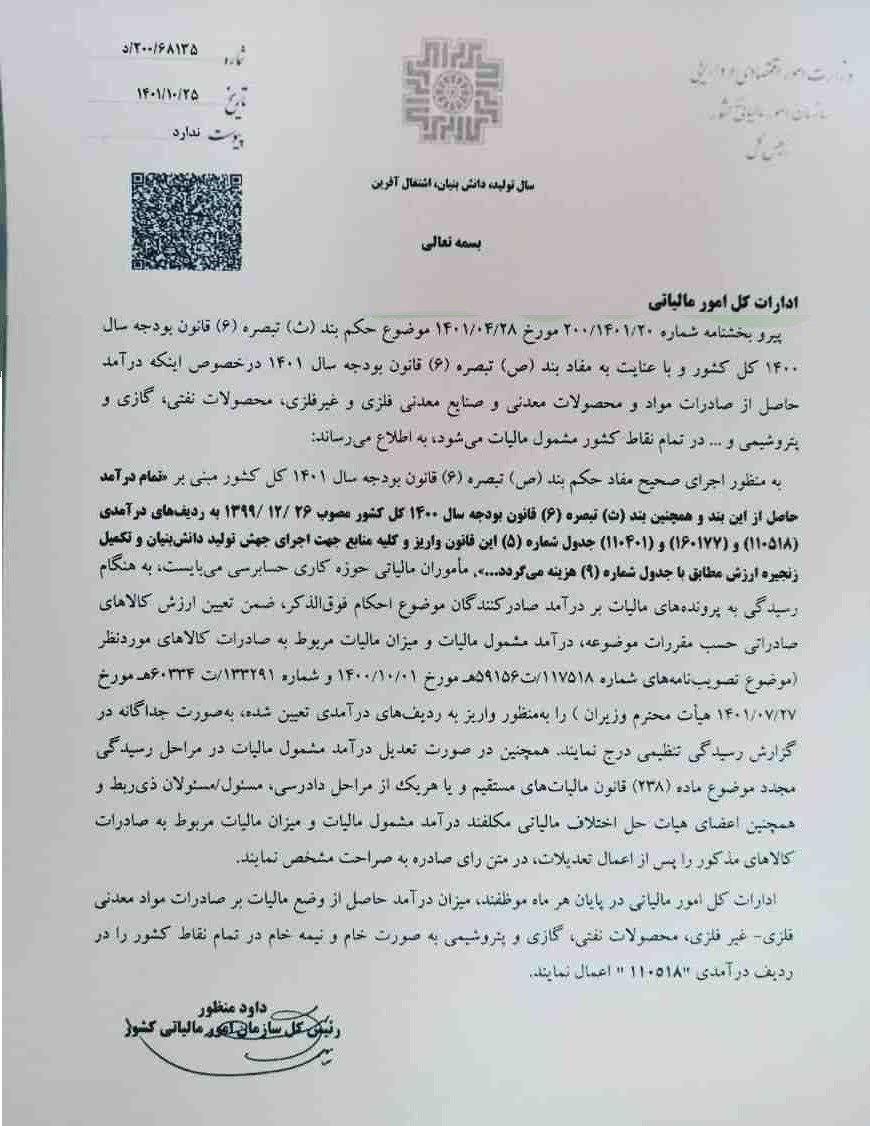 وزارت امور اقتصادی و دارایی
سازمان امور مالیاتی کشور
رئیس کل
شماره ۲۰۰/۶۸۱۳۵/د
تاریخ ۱۴۰۱/۱۰/۲۵
پیوست ندارد
سال تولید، دانش بنیان، اشتغال آفرین
بسمه تعالی
ادارات کل امور مالیاتی
پیرو بخشنامه شماره ۲۰۰/۱۴۰۱/۲۰ مورخ ۱۴۰۱/۰۴/۲۸ موضوع حکم بند (ث) تبصره (۶) قانون بودجه سال
۱۴۰۰ کل کشور و با عنایت به مفاد بند (ص) تبصره (۶) قانون بودجه سال ۱۴۰۱ درخصوص اینکه درآمد
حاصل از صادرات مواد و محصولات معدنی و صنایع معدنی فلزی و غیرفلزی، محصولات نفتی، گازی و
پتروشیمی و ... در تمام نقاط کشور مشمول مالیات می‌شود، به اطلاع می‌رساند:
به منظور اجرای صحیح مفاد حکم بند (ص) تبصره (۶) قانون بودجه سال ۱۴۰۱ کل کشور مبنی بر «تمام درآمد
حاصل از این بند و همچنین بند (ث) تبصره (۶) قانون بودجه سال ۱۴۰۰ کل کشور مصوب ۲۶ /۱۲ /۱۳۹۹ به ردیف‌های درآمدی
(۱۱۰۵۱۸) و (۱۶۰۱۷۷) و (۱۱۰۴۰۱) جدول شماره (۵) این قانون واریز و کلیه منابع جهت اجرای جهش تولید دانش‌بنیان و تکمیل
زنجیره ارزش مطابق با جدول شماره (۹) هزینه می‌گردد...»، مأموران مالیاتی حوزه کاری حسابرسی می‌بایست، به هنگام
رسیدگی به پرونده‌های مالیات بر درآمد صادرکنندگان موضوع احکام فوق‌الذکر، ضمن تعیین ارزش کالاهای
صادراتی حسب مقررات موضوعه، درآمد مشمول مالیات و میزان مالیات مربوط به صادرات کالاهای موردنظر
(موضوع تصویب‌نامه‌های شماره ۱۱۷۵۱۸/ت۵۹۱۵۶هـ مورخ ۱۴۰۰/۱۰/۰۱ و شماره ۱۳۳۲۹۱/ت ۶۰۳۳۴هـ مورخ
۱۴۰۱/۰۷/۲۷ هیأت محترم وزیران ) را به‌منظور واریز به ردیف‌های درآمدی تعیین شده، به‌صورت جداگانه در
گزارش رسیدگی تنظیمی درج نمایند. همچنین در صورت تعدیل درآمد مشمول مالیات در مراحل رسیدگی
مجدد موضوع ماده (۲۳۸) قانون مالیات‌های مستقیم و یا هریک از مراحل دادرسی، مسئول/مسئولان ذی‌ربط و
همچنین اعضای هیات حل اختلاف مالیاتی مکلفند درآمد مشمول مالیات و میزان مالیات مربوط به صادرات
کالاهای مذکور را پس از اعمال تعدیلات، در متن رای صادره به صراحت مشخص نمایند.
ادارات کل امور مالیاتی در پایان هر ماه موظفند، میزان درآمد حاصل از وضع مالیات بر صادرات مواد معدنی
فلزی- غیر فلزی، محصولات نفتی، گازی و پتروشیمی به صورت خام و نیمه خام در تمام نقاط کشور را در
ردیف درآمدی "۱۱۰۵۱۸ " اعمال نمایند.
داود منظور
رئیس کل سازمان امور مالیاتی کشور